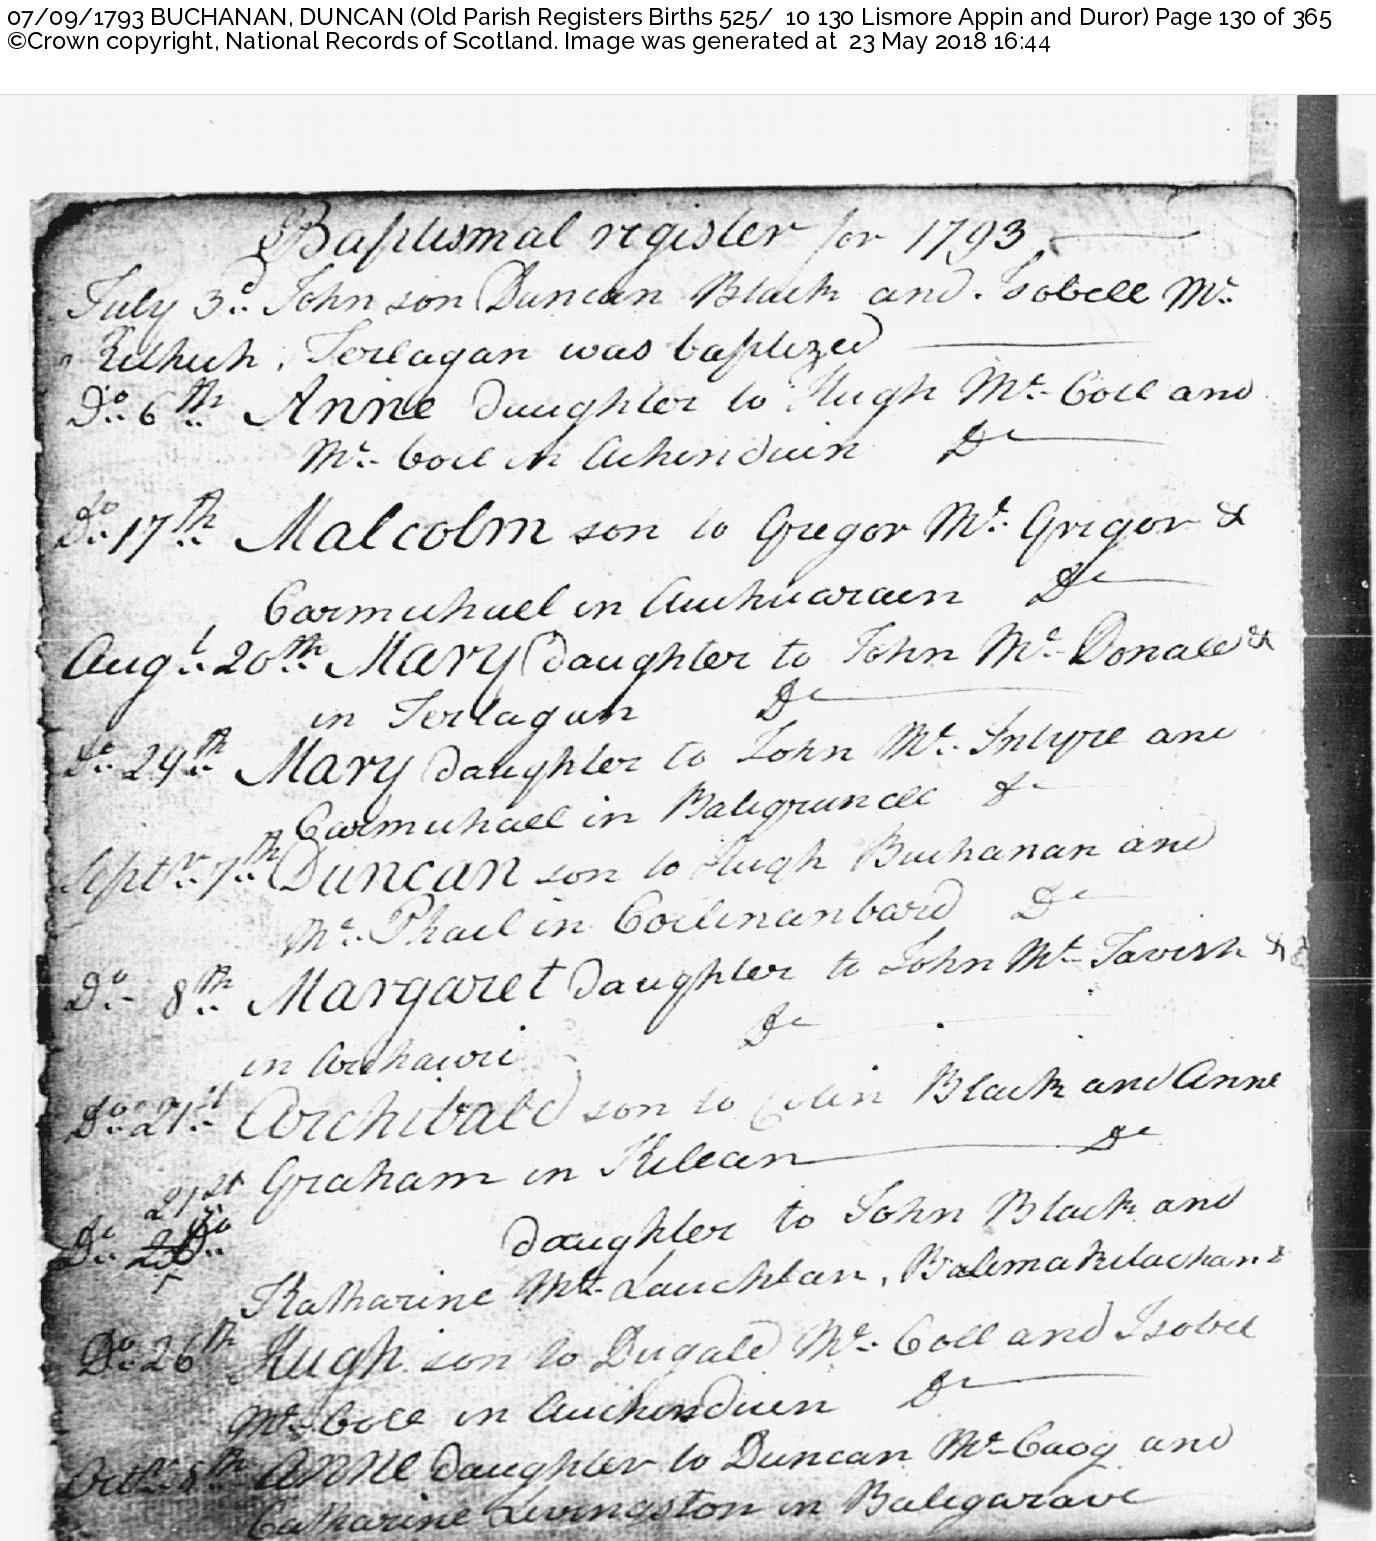 07/09/1793 BUCHANAN, DUNCAN (Old Parish Registers Births 525/ 10 130 Lismore Appin and Duror) Page 130 of 365
©Crown copyright, National Records of Scotland. Image was generated at 23 May 2018 16:44
Baptismal register for 1793
July 3d. John son Duncan Black and Isobell Mc.
Tirlagan was baptized
Do. 6th Anne daughter to Hugh Mc. Coll and
Mc. Coll in Achinduin Do
Do. 17th Malcolm son to Gregor Mc. Grigor &
Carmichael in Do
Augt. 20th Mary daughter to John Mc. Donald &
in Tirlagan Do
Do. 29th Mary daughter to John Mc. Intyre and
Carmichael in Baligrundle Do
Septr. 7th Duncan son to Hugh Buchanan and
Mc. Phail in Do
Do. 8th Margaret daughter to John Mc. Tavish &
in Do
Do. 21st Archibald son to Colin Black and Anne
Graham in Kilean Do
21st
Do. daughter to John Black and
Katharine Mc. Lauchlan,
Do. 26th Hugh son to Dugald Mc. Coll and Isobel
Mc. Coll in Auchinduin Do
Octbr. 8th Anne daughter to Duncan Mc. Caog and
Catharine Livingston in Baligarave